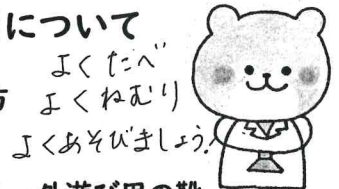 について
よくたべ
よくねむり
よくあそびましょう!
外遊び用の靴